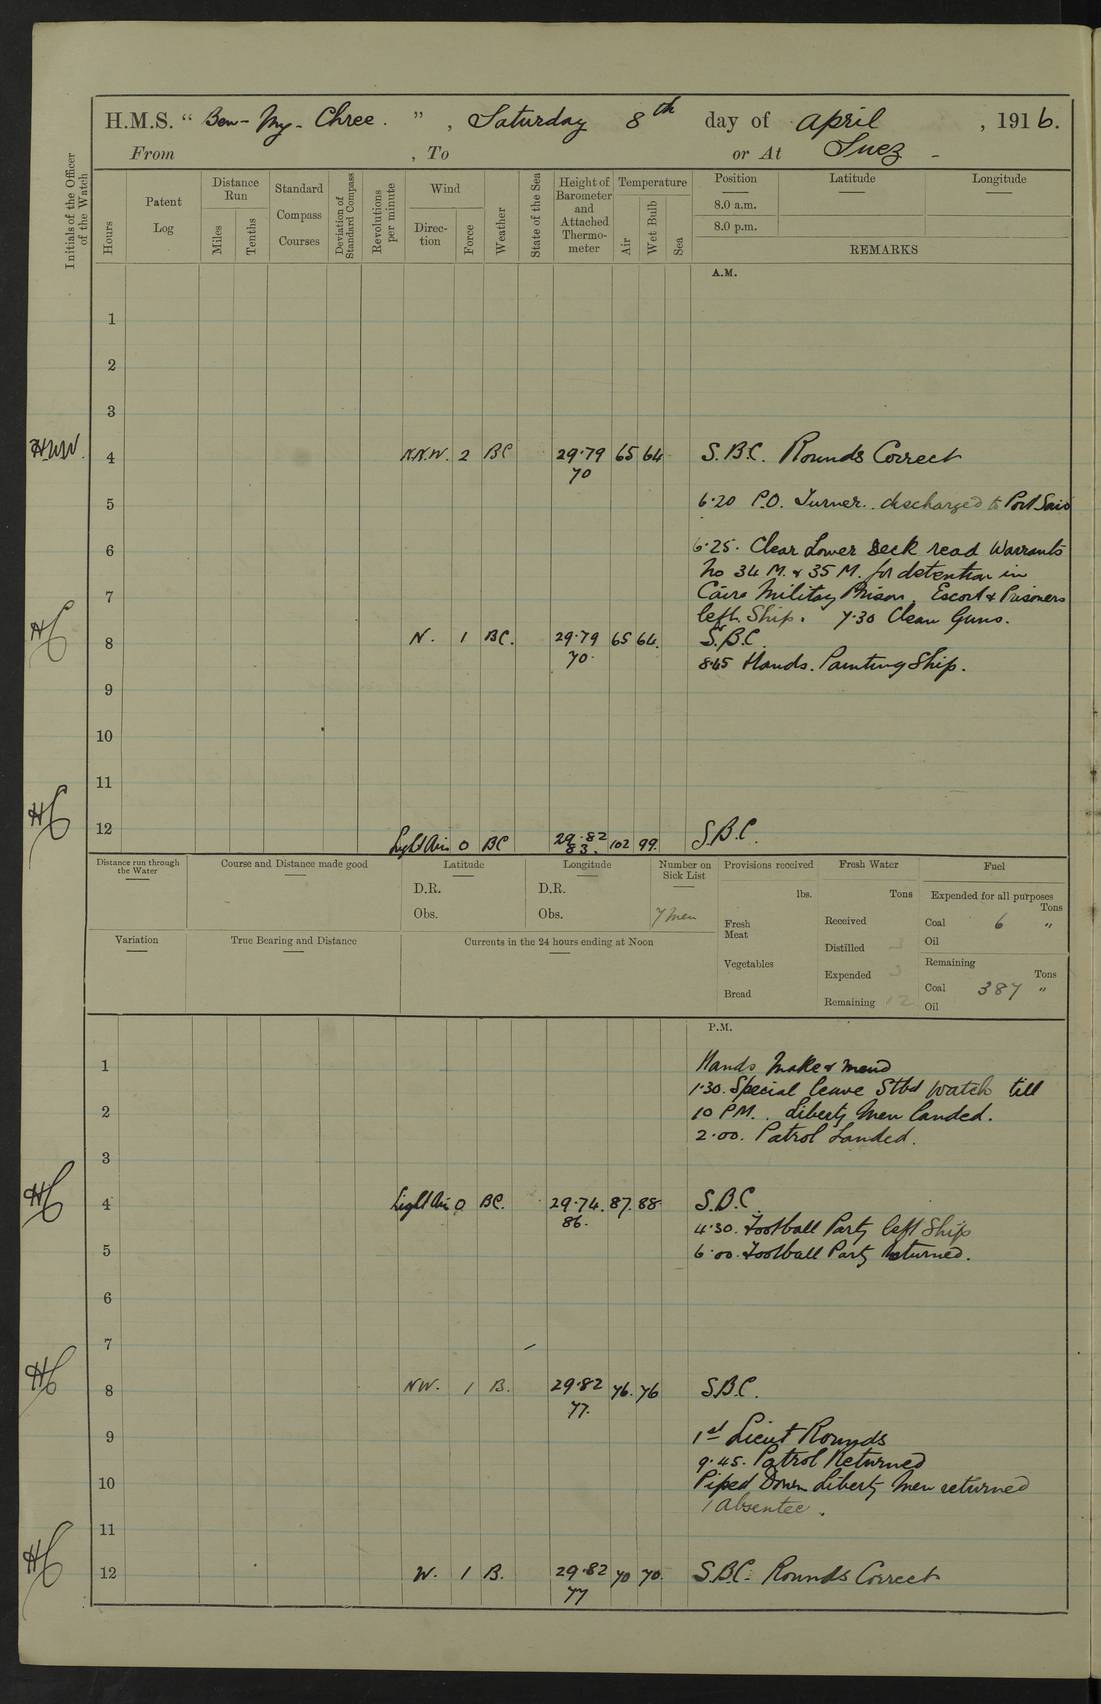 H.M.S. “ Ben-My-Chree. ” , Saturday 8th day of April , 1916.
From , To or At Suez -
Initials of the Officer of the Watch
Hours
Patent Log
Distance Run
Miles
Tenths
Standard Compass Courses
Deviation of Standard Compass
Revolutions per minute
Wind
Direction
Force
Weather
State of the Sea
Height of Barometer and Attached Thermometer
Temperature
Air
Wet Bulb
Sea
Position Latitude Longitude
8.0 a.m.
8.0 p.m.
REMARKS
A.M.
1
2
3
HWW. 4 N.N.W. 2 BC 29.79 65 64 S.B.C. Rounds Correct
70
5 6.20 P.O. Turner. discharged to Port Said
6 6.25. Clear Lower Deck read Warrants
No 34 M. & 35 M. for detention in
7 Cairo Military Prison. Escort & Prisoners
left Ship. 7.30 Clean Guns.
HC 8 N. 1 BC. 29.79 65 64. S.B.C
70. 8.45 Hands. Painting Ship.
9
10
11
HC 12 Light Air 0 BC 29.82 102 99. S.B.C.
83.
Distance run through the Water
Course and Distance made good
Latitude
D.R.
Obs.
Longitude
D.R.
Obs.
Number on Sick List
7 men
Provisions received
lbs.
Fresh Meat
Vegetables
Bread
Fresh Water
Tons
Received
Distilled
Expended 3
Remaining 12
Fuel
Expended for all purposes
Tons
Coal 6 ”
Oil
Remaining
Tons
Coal 387 ”
Oil
Variation
True Bearing and Distance
Currents in the 24 hours ending at Noon
P.M.
1 Hands Make & mend
1.30. Special leave Stbd Watch till
2 10 PM. Liberty Men landed.
2.00. Patrol Landed.
3
HC 4 Light Air 0 BC. 29.74. 87. 88 S.B.C.
86. 4.30. Football Party left Ship
5 6.00. Football Party Returned.
6
7
HC 8 NW. 1 B. 29.82 76. 76 S.B.C.
77.
9 1st Lieut Rounds
9.45. Patrol Returned
10 Piped Down Liberty Men returned
1 Absentee.
11
HC 12 W. 1 B. 29.82 70 70. S.B.C. Rounds Correct
77